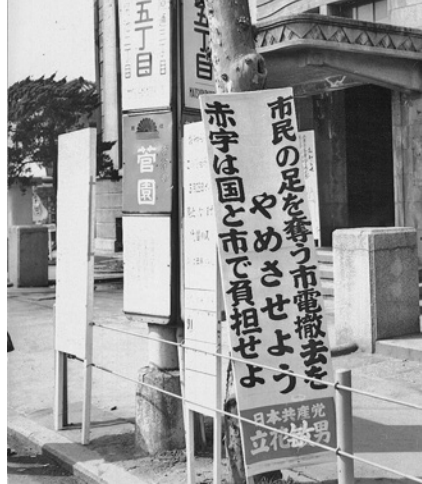 五丁目
五丁目
菅園
市民の足を奪う市電撤去を
やめさせよう
赤字は国と市で負担せよ
日本共産党
立花敏男